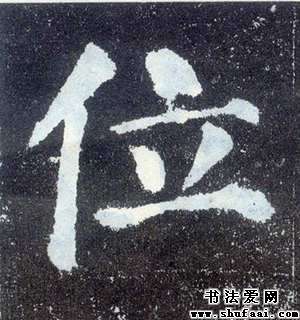 位
书法爱网
www.shufaai.com